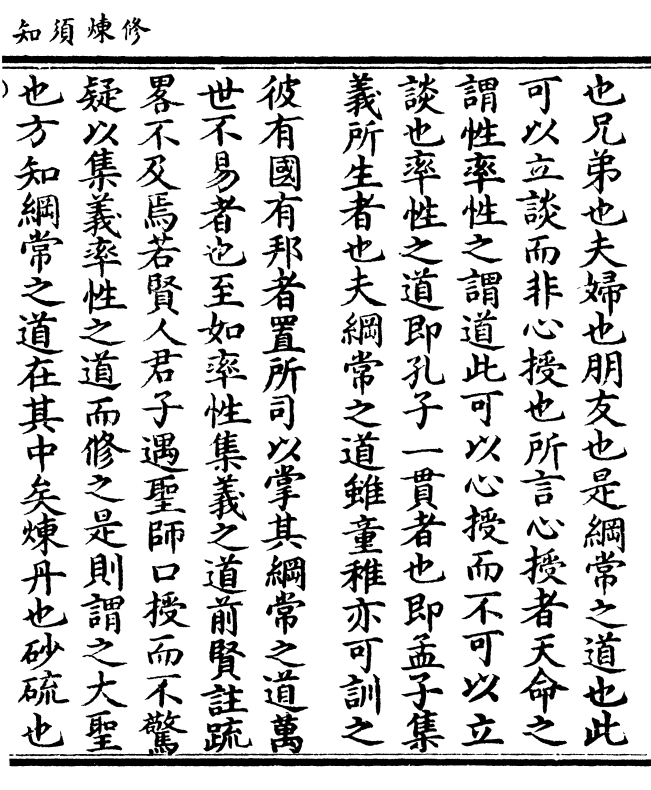 修煉須知
也兄弟也夫婦也朋友也是綱常之道也此
可以立談而非心授也所言心授者天命之
謂性率性之謂道此可以心授而不可以立
談也率性之道即孔子一貫者也即孟子集
義所生者也夫綱常之道雖童稚亦可訓之
彼有國有邦者置所司以掌其綱常之道萬
世不易者也至如率性集義之道前賢註疏
畧不及焉若賢人君子遇聖師口授而不驚
疑以集義率性之道而修之是則謂之大聖
也方知綱常之道在其中矣煉丹也砂硫也